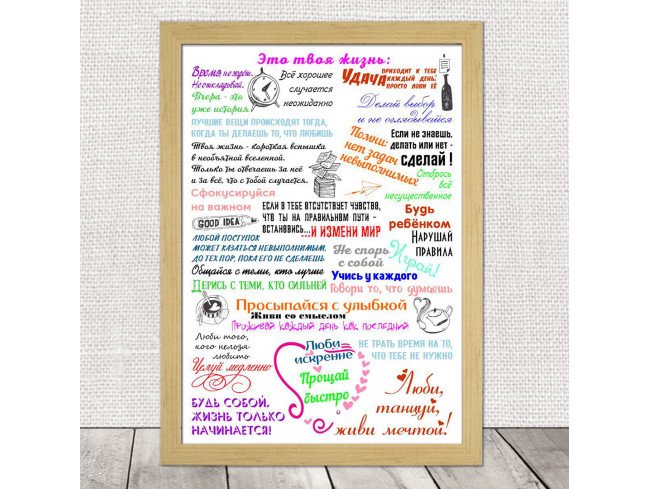 Это твоя жизнь:
Время не ждёт.
Не откладывай.
Вчера - это
уже история!
Всё хорошее
случается
неожиданно
Удача приходит к тебе
каждый день:
просто лови её
Делай выбор
и не оглядывайся
Лучшие вещи происходят тогда,
когда ты делаешь то, что любишь
Твоя жизнь - короткая вспышка
в необъятной вселенной.
Только ты отвечаешь за неё
и за всё, что с тобой случается.
Помни:
нет задач
невыполнимых
Если не знаешь,
делать или нет -
сделай !
Отбрось
всё
несущественное
Сфокусируйся
на важном
GOOD IDEA
Если в тебе отсутствует чувство,
что ты на правильном пути -
встановись...и измени мир
Будь
ребёнком
Нарушай
правила
Играй!
Любой поступок
может казаться невыполнимым,
до тех пор, пока его не сделаешь
Не спорь
с собой
Общайся с теми, кто лучше
Учись у каждого
Дерись с теми, кто сильней
Говори то, что думаешь
Просыпайся с улыбкой
Живи со смыслом
Проживай каждый день как последний
Люби того,
кого нельзя
любить
Целуй медленно
Люби
искренне
Прощай
быстро
Не трать время на то,
что тебе не нужно
Будь собой,
жизнь только
начинается!
Люби,
танцуй,
живи мечтой!